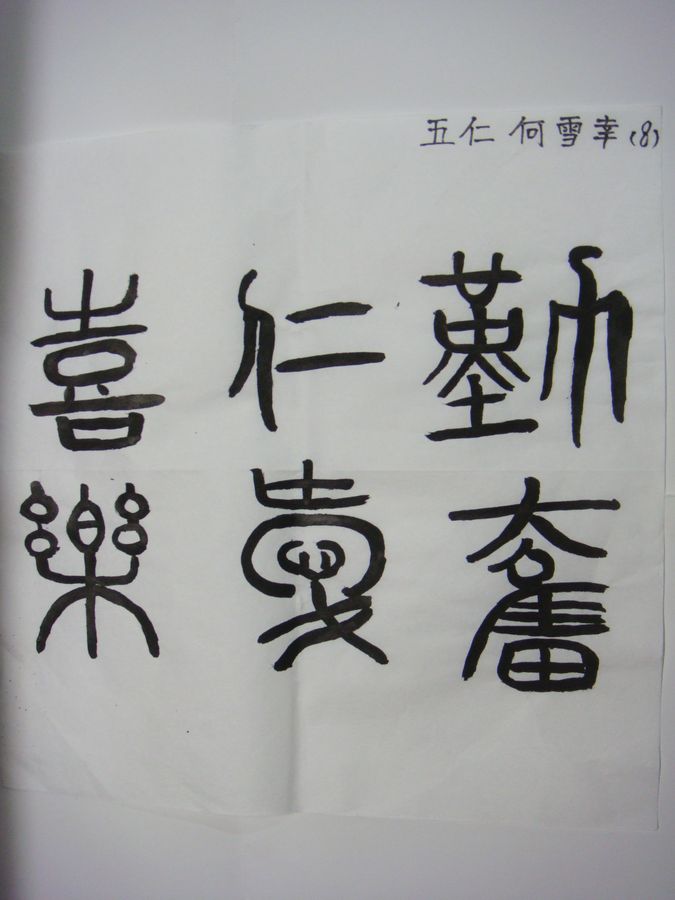 五仁 何雪幸 (8)
勤奮
仁愛
喜樂